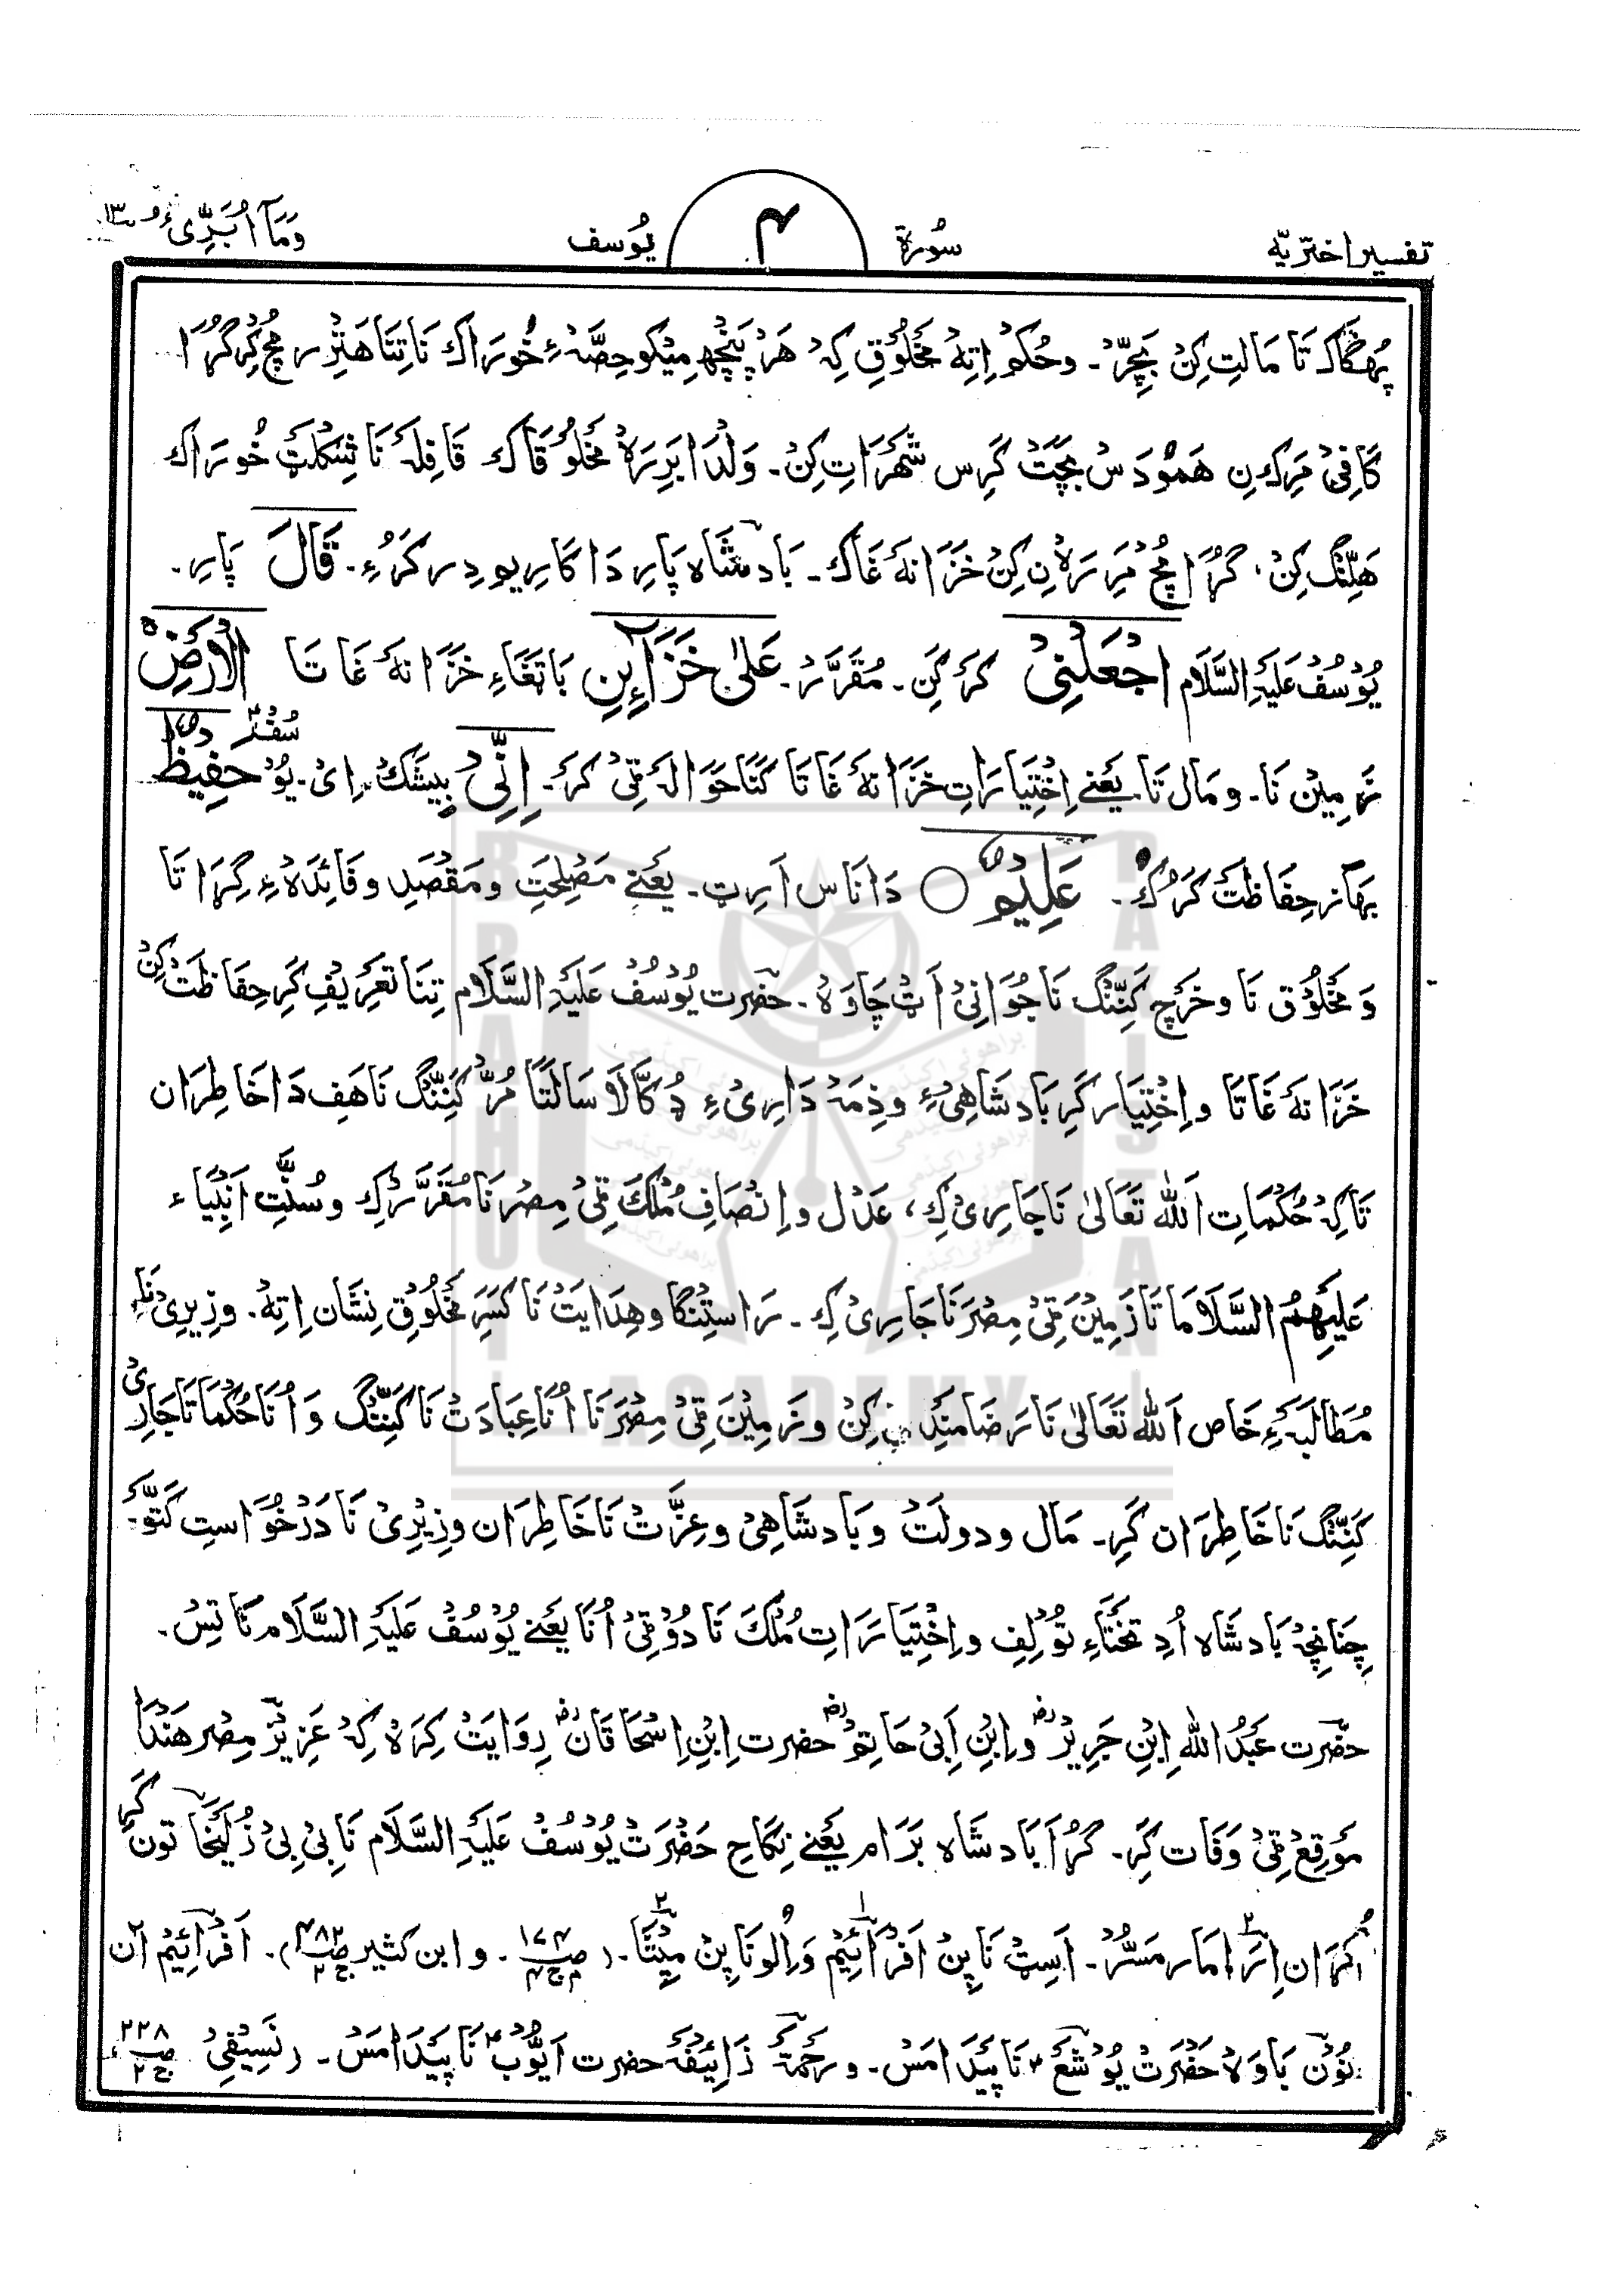 تفسیر اختریّه
سُورة
۴
یُوسف
وَمَآ اُبَرِّیُٔ ۱۳
تَا مَالتِ کِنْ بَچِرّ۔ وحُکم اِتِهْ مَخلُوقِ کِهْ هَر پَنچْهِمِیکو حِصَّهْ ءِ خُورَاک نَا تِنَا
کَافِیْ مَرِک نِ هَمُودَسْ بَچَّتْ کَرِس شَهْرَاتِ کِنْ۔ وَلْدَا بَرِرَهْ مَخْلُوْقَاکْ قَافِلَهْ نَا شِکْلَتْ خُورَاک
هَلِّنْگ کِنْ، گُرَا مُچْ مَرِرَهْ نِ کِنْ خَزَانَهْ غَاک۔ بَادشَاه پَارِ دَا کَارِیو دِر کَرُءِ۔ قَالَ پَارِ۔
یُوْسُفْ عَلَیْهِ السَّلَام اجْعَلْنِیْ کَرَکَنِ۔ مُقَرَّرْ۔ عَلٰی خَزَآئِنِ بَاتَغَاءِ خَزَانَهْ غَاتَا الْاَرْضِ ۚ
زَمِیْن نَا۔ و مَال تَا یَعْنِے اِخْتِیَارَاتِ خَزَانَهْ غَاتَا کَنَّا حَوَالَهْ ٹِیْ کَرَ۔ اِنِّیْ بِیْشَکْ۔ اِیْ۔ یُوْ حَفِیْظٌ
بَهَاز حِفَاظَتْ کَرُکْ۔ عَلِیْمٌ ○ دَانَا س اَرِٹ۔ یَعْنِے مَصْلِحَتِ و مَقْصَدِ و فَائِدَهْ ءِ گِرَاتَا
وَ مَخْلُوْق نَا و خَرْچ کَنِنْگ نَا جُوَانِیْ اَٹْ چَاوَهْ۔ حضرت یُوْسُفْ عَلَیْهِ السَّلَام تِنَا تَعْرِیْفِ کَرِ حِفَاظَتْ کِنْ
خَزَانَهْ غَاتَا و اِخْتِیَار کَرِ بَادشَاهِیْ ءِ و ذِمَّهْ دَارِیْ ءِ ڈُکَّالَا سَالتَا مُرْ کَنِّنْگ نَا هَف دَا خَاطِرَان
تَاکِهْ حُکْمَاتِ اَللّٰه تَعَالٰی نَا جَارِیْ کِ، عَدْل و اِنْصَافِ مُلْکَ ٹِیْ مِصْر نَا مُقَرَّرْ کِ و سُنَّتِ اَنْبِیَاء
عَلَیْهِمُ السَّلَامَاتَا زَمِیْنَ ٹِیْ مِصْرَنَا جَارِیْ کِ۔ رَاستِنْگَا و هِدَایَتْ نَا کَسَرِ مَخْلُوْقِ نِشَان اِتِهْ۔ وزِیرِیْ نَاءِ
مُطَالَبَهْ ءِ خَاص اَللّٰه تَعَالٰی نَا رَضَامَنْدِی کِنْ و زَمِیْنَ ٹِیْ مِصْرَنَا اُنَا عِبَادَتْ نَا کَنِّنْگ وَ اُنَا حُکْمَاتَا جَارِیْ
کَنِّنْگ نَا خَاطِرَان کَرِ۔ مَال و دولَتْ و بَادشَاهِیْ و عِزَّتْ نَا خَاطِرَان وزِیْرِیْ نَا دَرْخُوَاسِتِ کَتَّوْ۔
چَنَانِچَهْ بَادشَاه اُدِ تَخْتَاءِ تُوْلِفِ و اِخْتِیَارَاتِ مُلْکَ نَا دُوْ ٹِیْ اُنَا یَعْنِے یُوْسُفْ عَلَیْهِ السَّلَام نَا تِسْ۔
حضرت عَبْدُ اللّٰه اِبْنِ جَرِیْرْ رض و اِبْنِ اَبِیْ حَاتِمْ رض حضرت اِبْنِ اِسْحَاقَان رض رِوَایَتْ کِرَهْ کِهْ عَزِیْزِ مِصْر هَنْدَا
مَوْقِعْ ٹِیْ وَفَات کَرِ۔ گُرَا بَادشَاه بَرَام یَعْنِے نِکَاحِ حَضْرَتْ یُوْسُفْ عَلَیْهِ السَّلَام نَا بِیْ بِیْ زُلَیْخَا تون کَرِ
اُکْرَان اِرَا مَار مَسُّرْ۔ اَسِٹْ نَا پِنْ اَفْرَائِیْم وَ اِلو نَا پِنْ مِیْشَا۔ (ص ۱۷۴ م ج ۴۔ و ابن کثیر ص ۴۸۲ ج ۲)۔ اَفْرَائِیْم اَن
نُوْن بَاوَهْ حَضْرَتْ یُوْشَعْ ۴ نَا پَیْدَا مَسْ۔ و رَحْمَة زَائِیْفَهْ حضرت اَیُّوْب ۴ نَا پَیْدَا مَسْ۔ (نَسِیْفِیْ ص ۲۲۸ ج ۲)